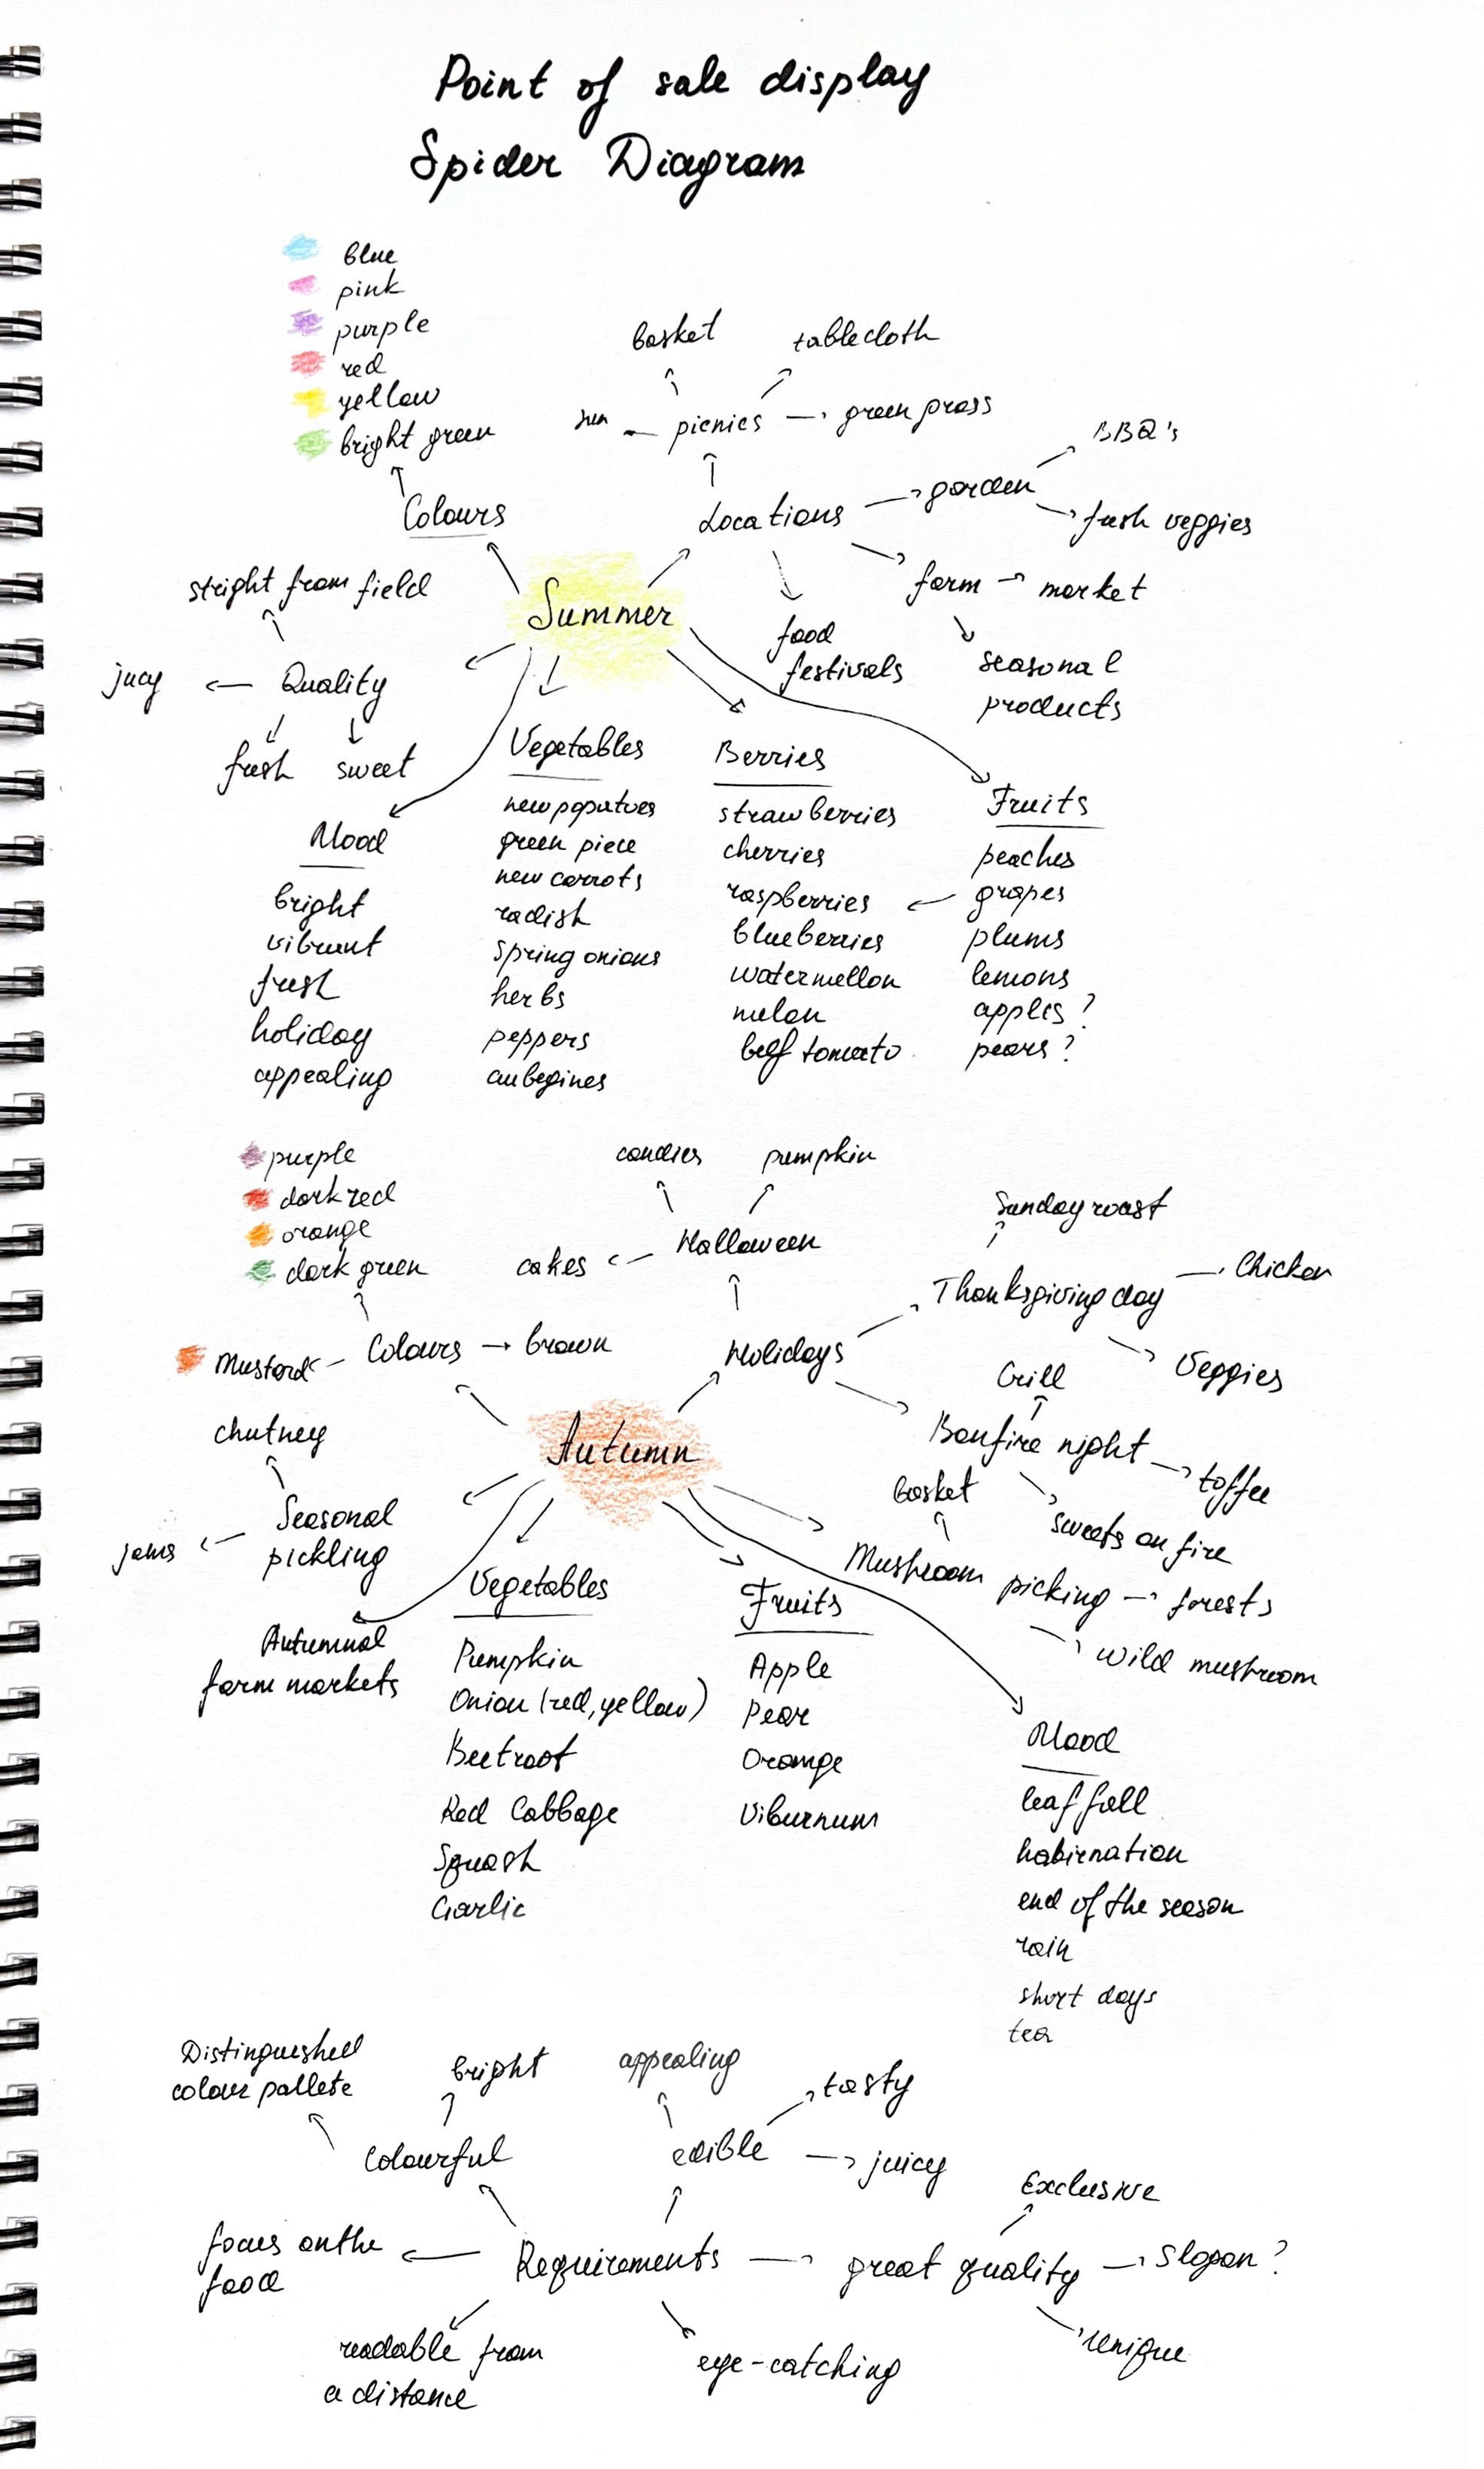 Point of sale display
Spider Diagram
blue
pink
purple
red
yellow
bright green
Colours
basket
tablecloth
sun
picnics
green grass
BBQ's
Locations
garden
fresh veggies
farm
market
food
festivals
seasonal
products
Summer
stright from field
jucy
Quality
fresh
sweet
Mood
bright
vibrant
fresh
holiday
appealing
Vegetables
new popatoes
green piece
new carrots
radish
spring onions
herbs
peppers
aubegines
Berries
strawberries
cherries
raspberries
blueberries
watermellon
melon
beef tomato
Fruits
peaches
grapes
plums
lemons
apples?
pears?
purple
dark red
orange
dark green
Mustard
Colours
brown
candies
pumpkin
cakes
Halloween
Sunday roast
Thanksgiving day
Chicken
Veggies
Holidays
Grill
Bonfire night
toffee
sweets on fire
Autumn
chutney
Seasonal
pickling
jams
Autumnal
farm markets
Vegetables
Pumpkin
Onion (red, yellow)
Beetroot
Red Cabbage
Squash
Garlic
Fruits
Apple
Pear
Orange
Viburnum
basket
Mushroom picking
forests
wild mushroom
Mood
leaf fall
habirnation
end of the season
rain
short days
tea
Distinguished
colour pallete
bright
Colourful
appealing
tasty
edible
juicy
Exclusive
focus on the
food
Requirements
great quality
Slogan?
unique
readable from
a distance
eye-catching